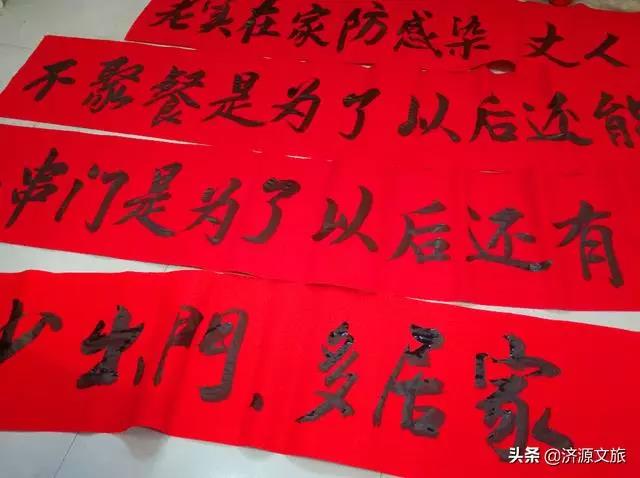 老实在家防感染 丈人
不聚餐是为了以后还能
串门是为了以后还有
少出門、多居家
头条 @济源文旅